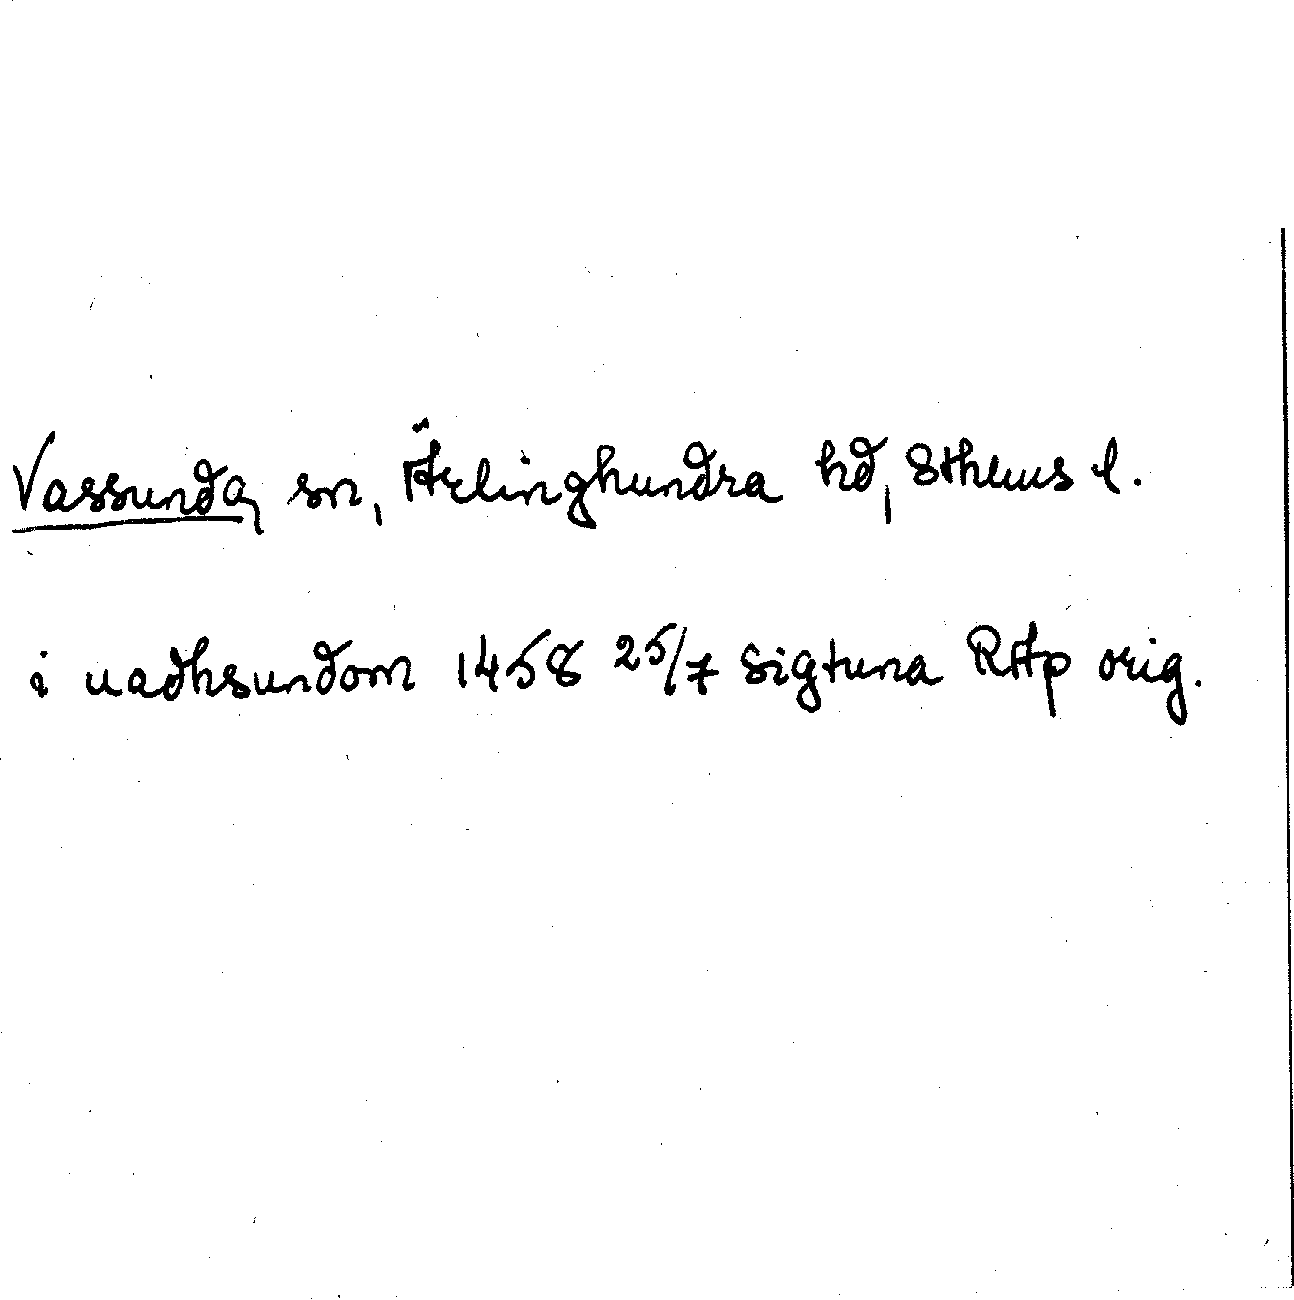 Vassunda, sn, Ärlinghundra hd, Sthlms l.
i uadhsundom 1458 25/7 Sigtuna RAp orig.